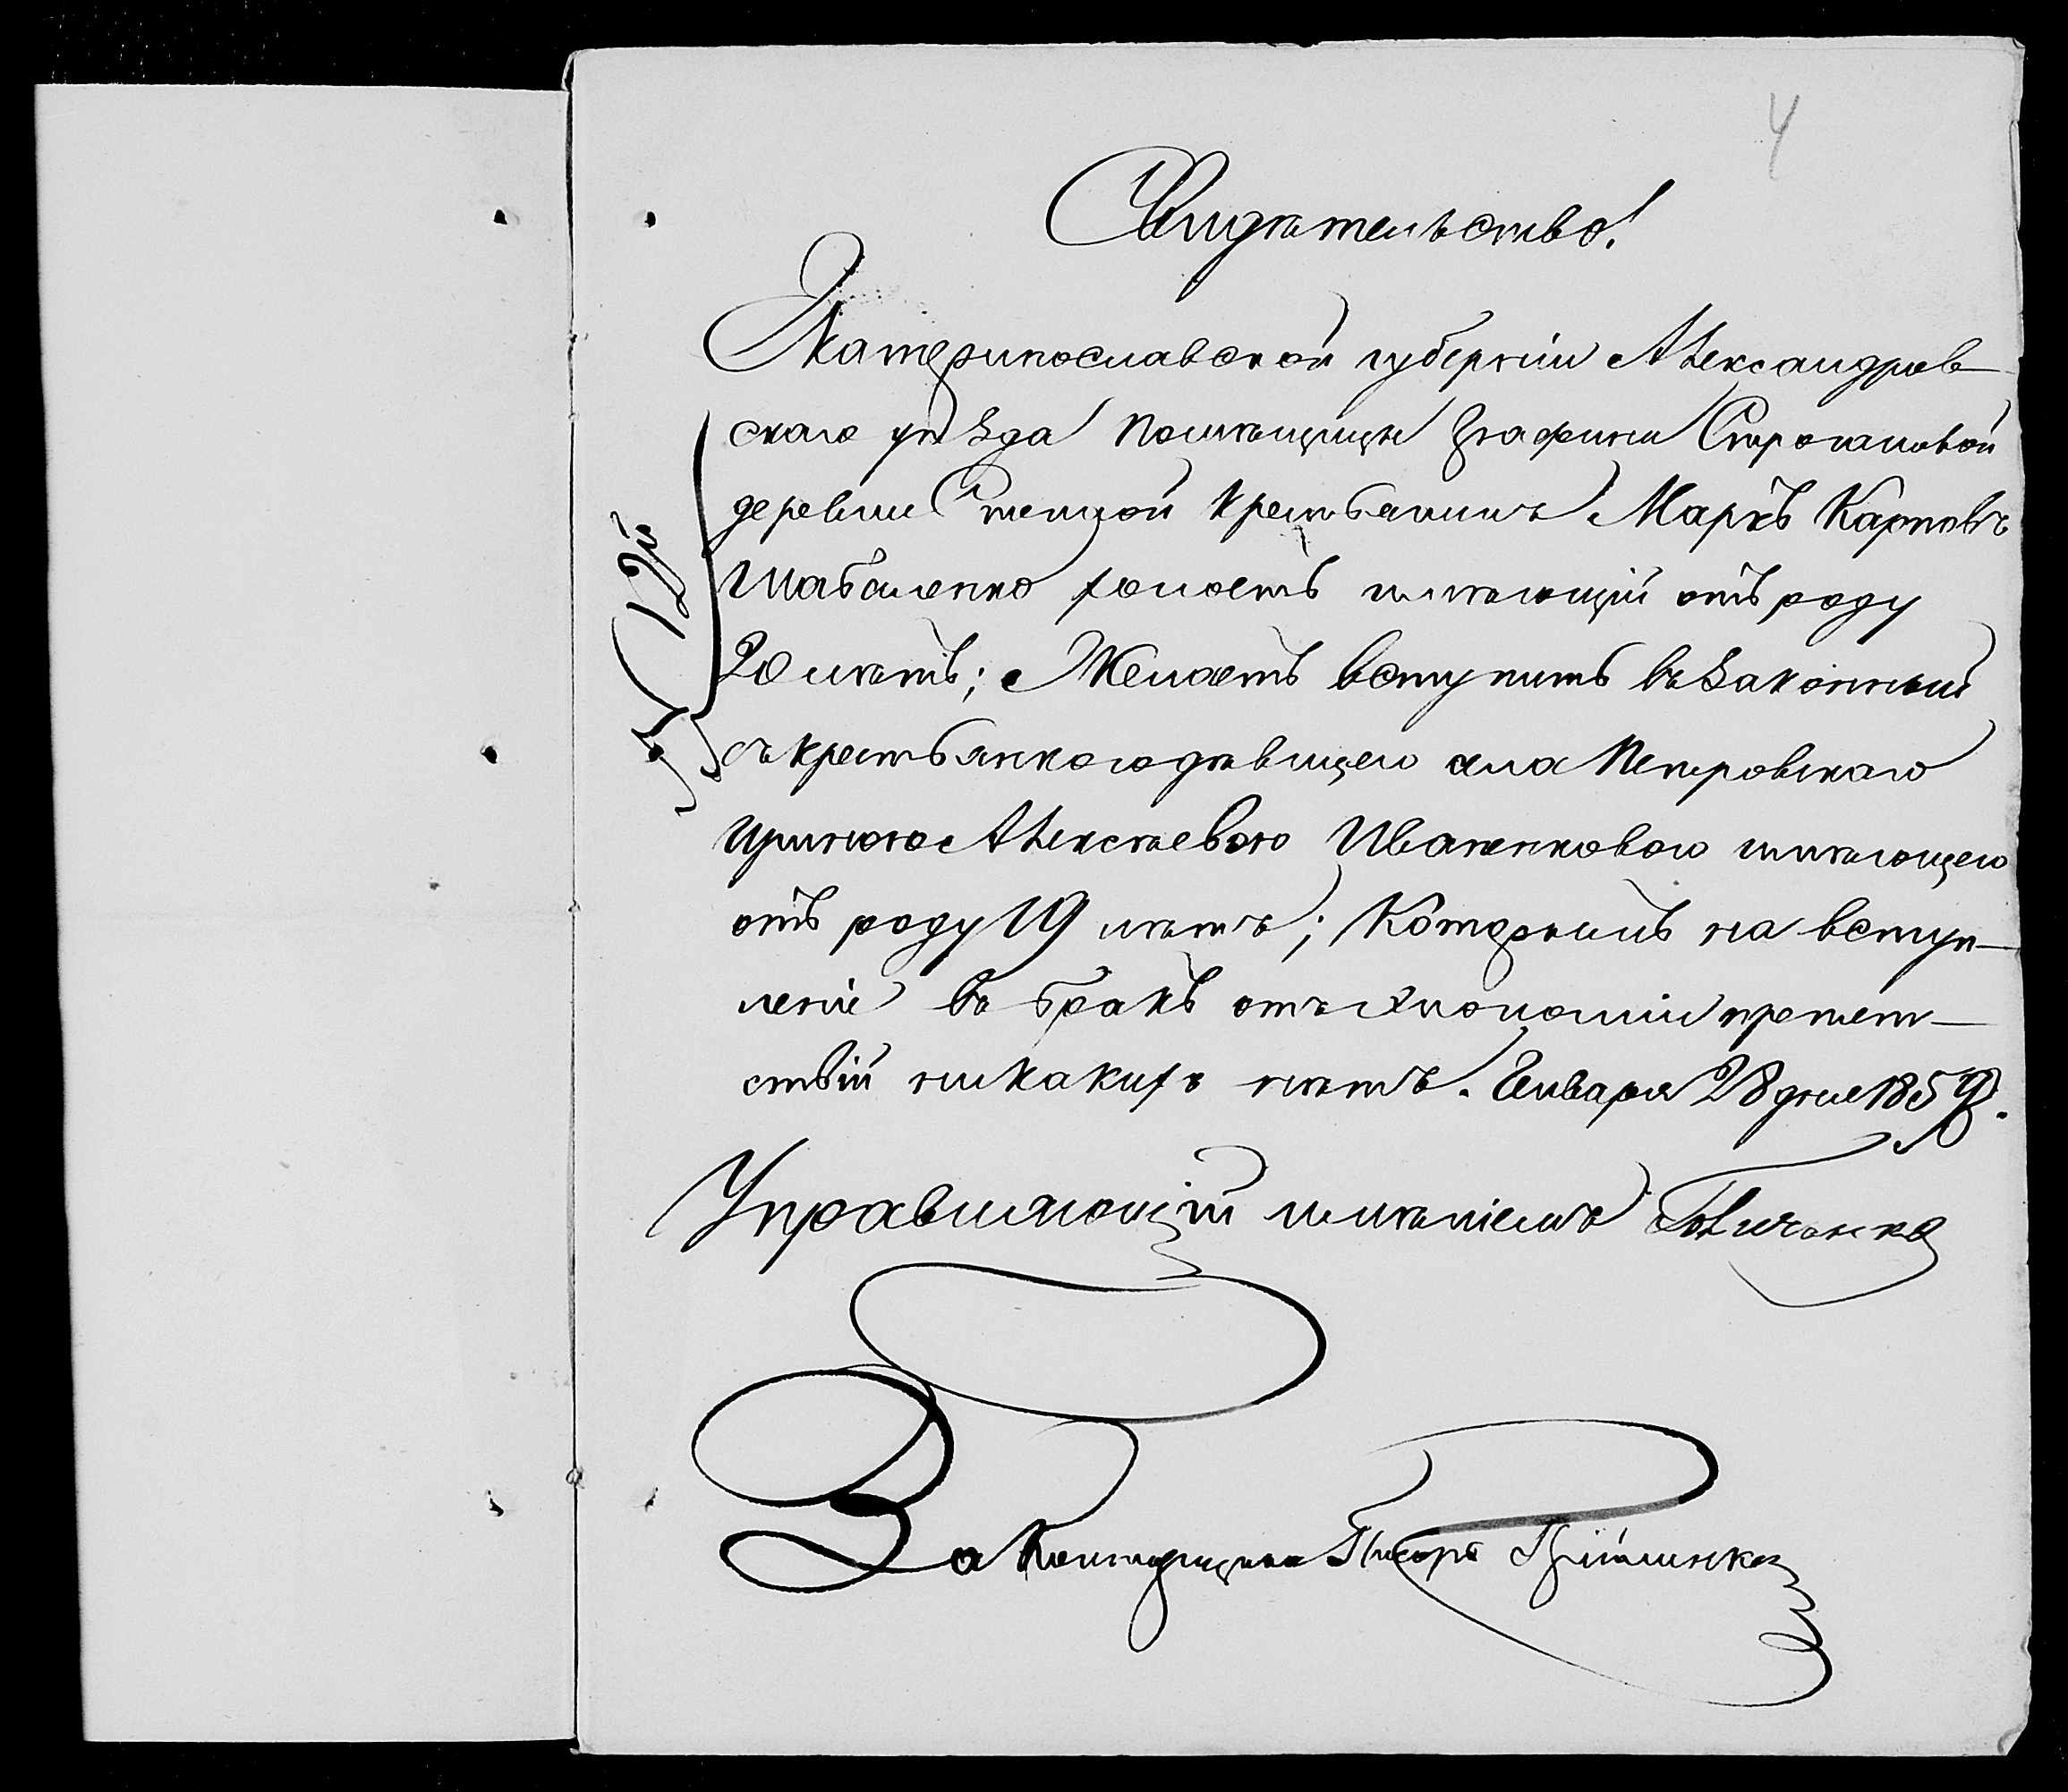 4
Свидѣтельство!
Екатеринославской губерніи Александров-
скаго уѣзда помѣщицы Графини Строгановой
деревни Степной крестьянинъ Маркъ Карповъ
Шабаленко холостъ имѣющій отъ роду
20 лѣтъ; Желаетъ вступить въ законный
съ крестьянкою дѣвицею села Петровскаго
Ириною Алексѣевою Иваненковою имѣющею
отъ роду 19 лѣтъ; Которымъ на вступ-
леніе въ бракъ отъ экономіи препят-
ствій никакихъ нѣтъ. Генваря 28 дня 1859.
Управляющій имѣніемъ
За Конторщика Писарь